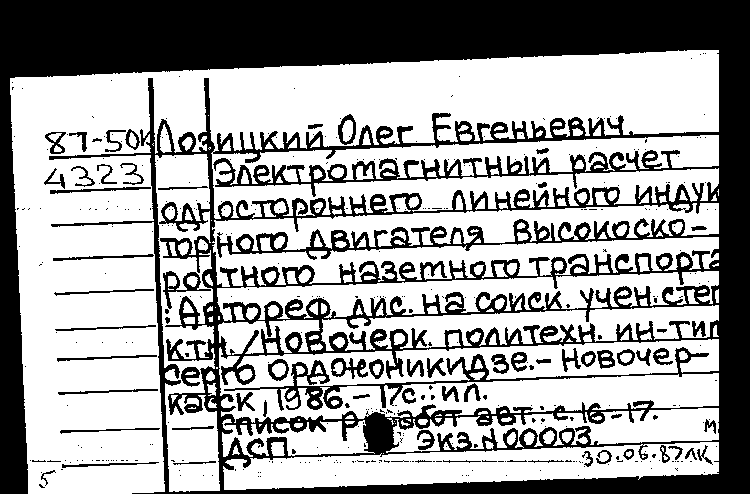 87-50К Лозицкий, Олег Евгеньевич.
4323 Электромагнитный расчет
одностороннего линейного индук
торного двигателя высокоско-
ростного наземного транспорта
: Автореф. дис. на соиск. учен. степ
к.т.н. / Новочерк. политехн. ин-т им
Серго Орджоникидзе.- Новочер-
касск, 1986.- 17с.: ил.
Список работ авт.: с. 16-17.
ДСП. Экз. N 00003.
30.06.87 ЛК
5